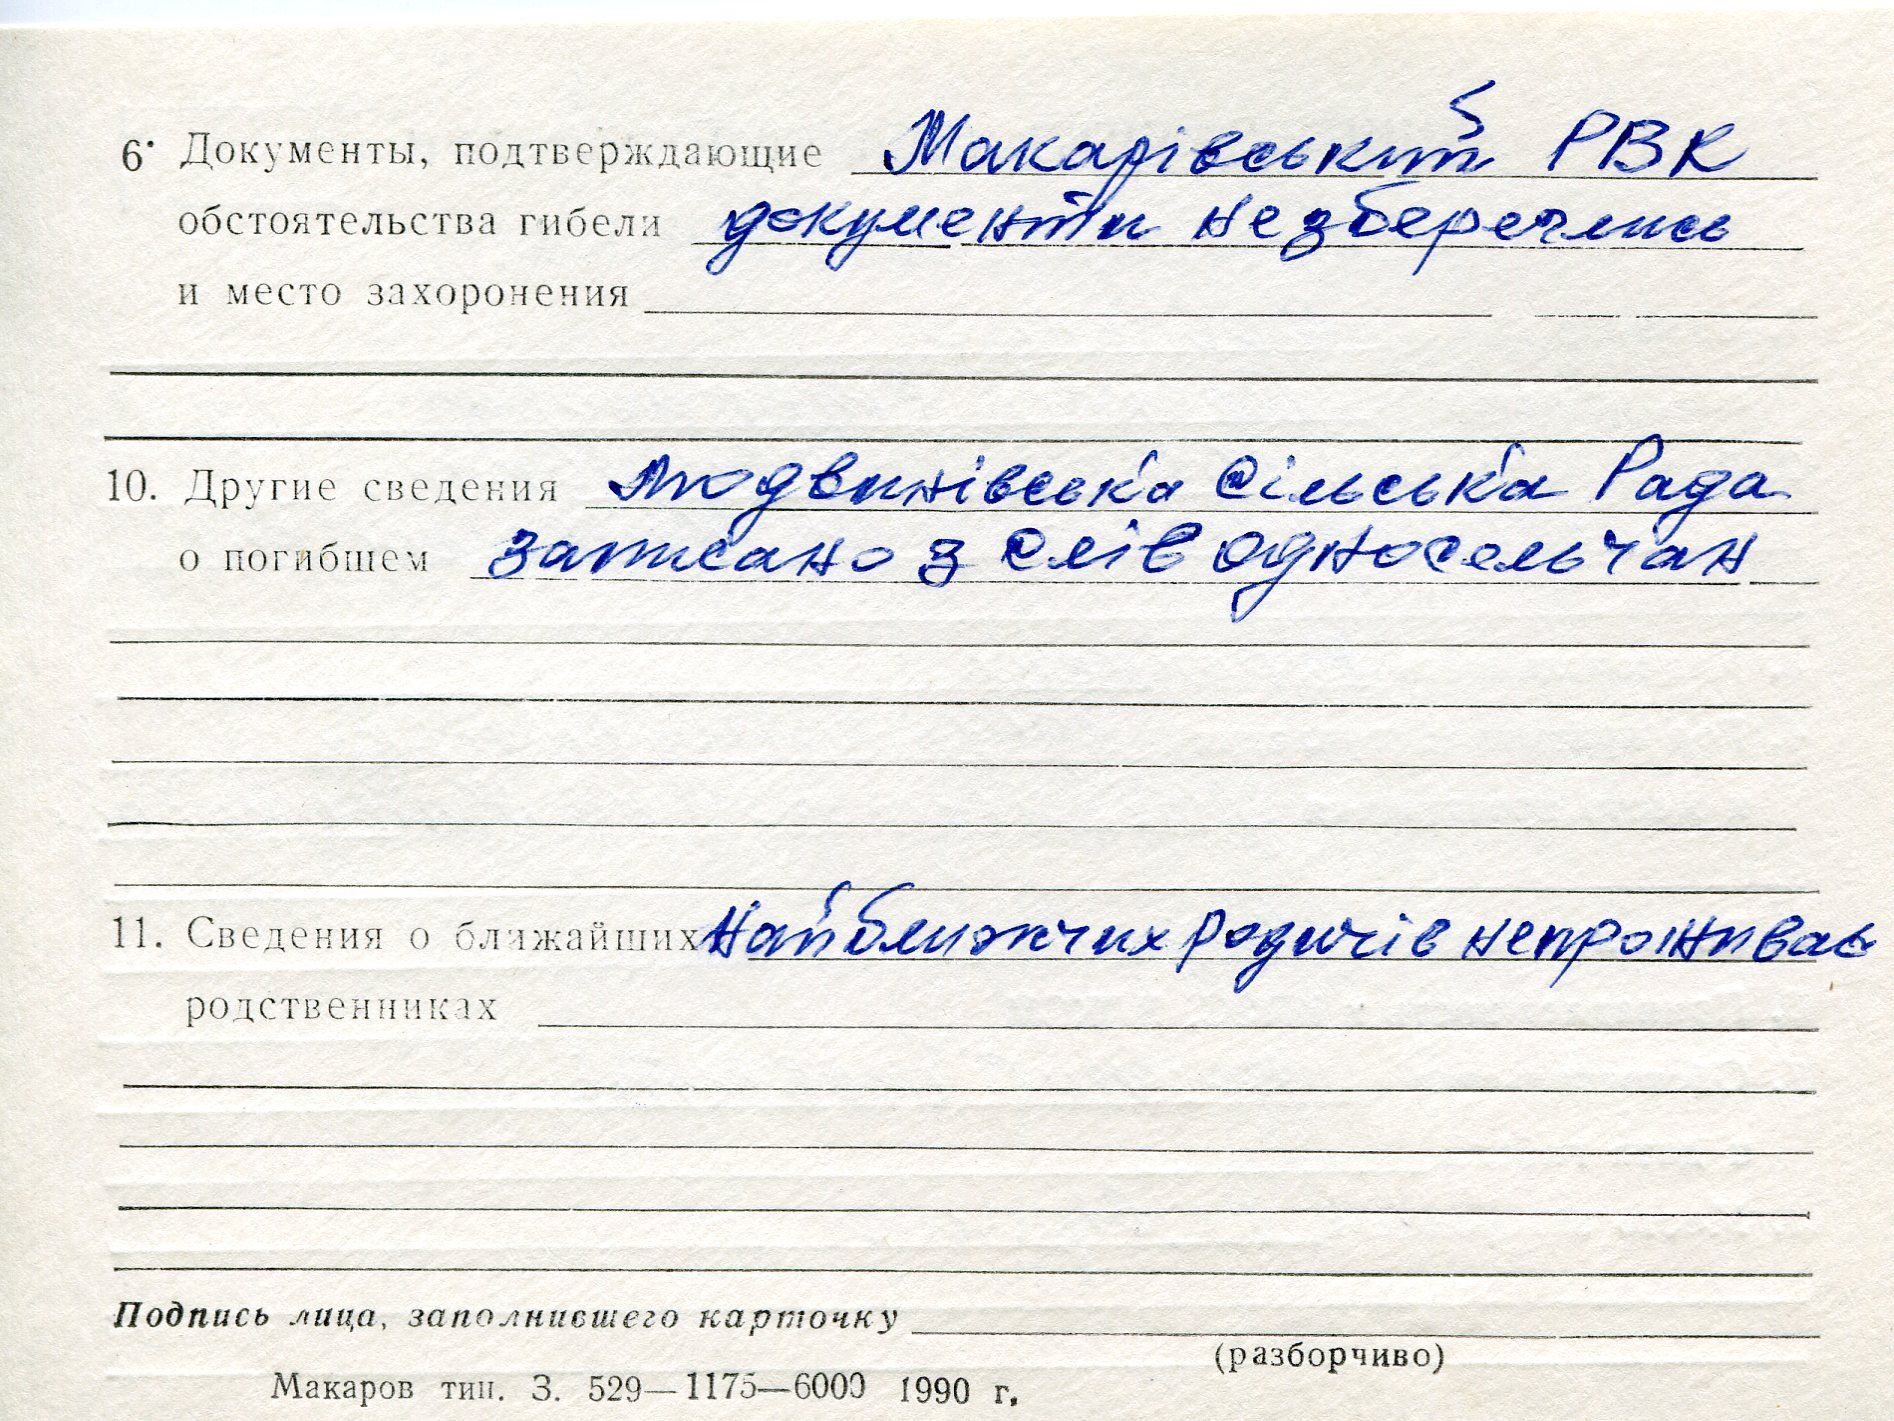 6. Документы, подтверждающие Макарівський РВК
обстоятельства гибели документи незбереглись
и место захоронения
10. Другие сведения Людвинівська Сільська Рада
о погибшем записано з слів односельчан
11. Сведения о ближайших Найближчих родичів непроживає
родственниках
Подпись лица, заполнившего карточку
(разборчиво)
Макаров тип. З. 529—1175—6000 1990 г.